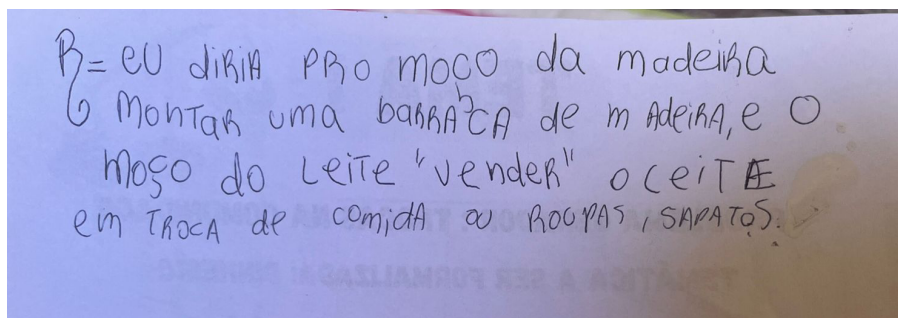 R= eu diria pro moço da madeira
montar uma barraca de madeira, e o
moço do leite "vender" o leite
em troca de comida ou roupas sapatos.